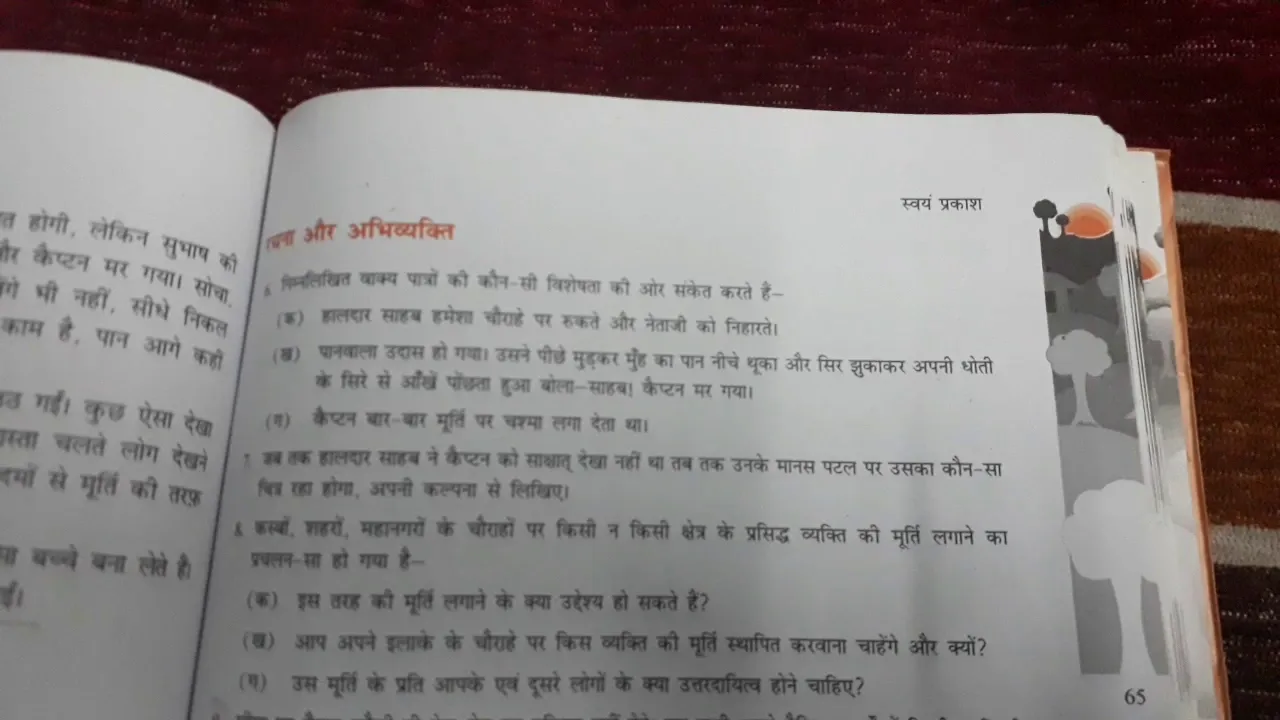 त होगी, लेकिन सुभाष की
और कैप्टन मर गया। सोचा,
गे भी नहीं, सीधे निकल
काम है, पान आगे कहीं
उठ गईं। कुछ ऐसा देखा
ास्ता चलते लोग देखने
दमों से मूर्ति की तरफ़
सा बच्चे बना लेते हैं।
ईं।
स्वयं प्रकाश
रचना और अभिव्यक्ति
निम्नलिखित वाक्य पात्रों की कौन-सी विशेषता की ओर संकेत करते हैं–
(क) हालदार साहब हमेशा चौराहे पर रुकते और नेताजी को निहारते।
(ख) पानवाला उदास हो गया। उसने पीछे मुड़कर मुँह का पान नीचे थूका और सिर झुकाकर अपनी धोती
के सिरे से आँखें पोंछता हुआ बोला–साहब! कैप्टन मर गया।
(ग) कैप्टन बार-बार मूर्ति पर चश्मा लगा देता था।
7. जब तक हालदार साहब ने कैप्टन को साक्षात् देखा नहीं था तब तक उनके मानस पटल पर उसका कौन-सा
चित्र रहा होगा, अपनी कल्पना से लिखिए।
8. कस्बों, शहरों, महानगरों के चौराहों पर किसी न किसी क्षेत्र के प्रसिद्ध व्यक्ति की मूर्ति लगाने का
प्रचलन-सा हो गया है–
(क) इस तरह की मूर्ति लगाने के क्या उद्देश्य हो सकते हैं?
(ख) आप अपने इलाके के चौराहे पर किस व्यक्ति की मूर्ति स्थापित करवाना चाहेंगे और क्यों?
(ग) उस मूर्ति के प्रति आपके एवं दूसरे लोगों के क्या उत्तरदायित्व होने चाहिए?
65